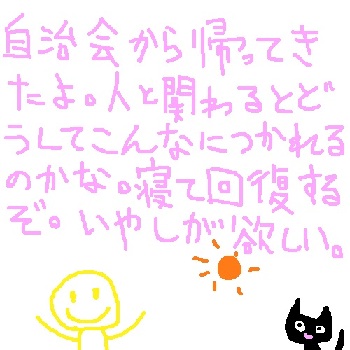 自治会から帰ってき
たよ。人と関わるとど
うしてこんなにつかれる
のかな。寝て回復する
ぞ。いやしが欲しい。